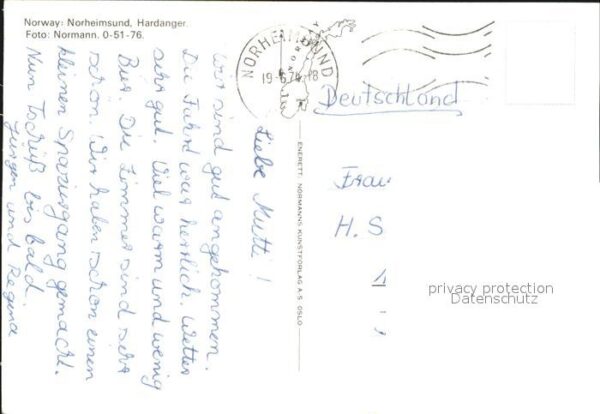 Norway: Norheimsund, Hardanger.
Foto: Normann. 0-51-76.
Liebe Mutti!
Wir sind gut angekommen.
Die Fahrt war herrlich. Wetter
sehr gut. Viel warm und wenig
Bier. Die Zimmer sind sehr
schön. Wir haben schon einen
kleinen Spaziergang gemacht.
Nun Tschüß bis bald.
Jürgen und Regina
ENERETT: NORMANNS KUNSTFORLAG A.S. OSLO
NORHEIMSUND
Deutschland
Frau
H. S
privacy protection
Datenschutz